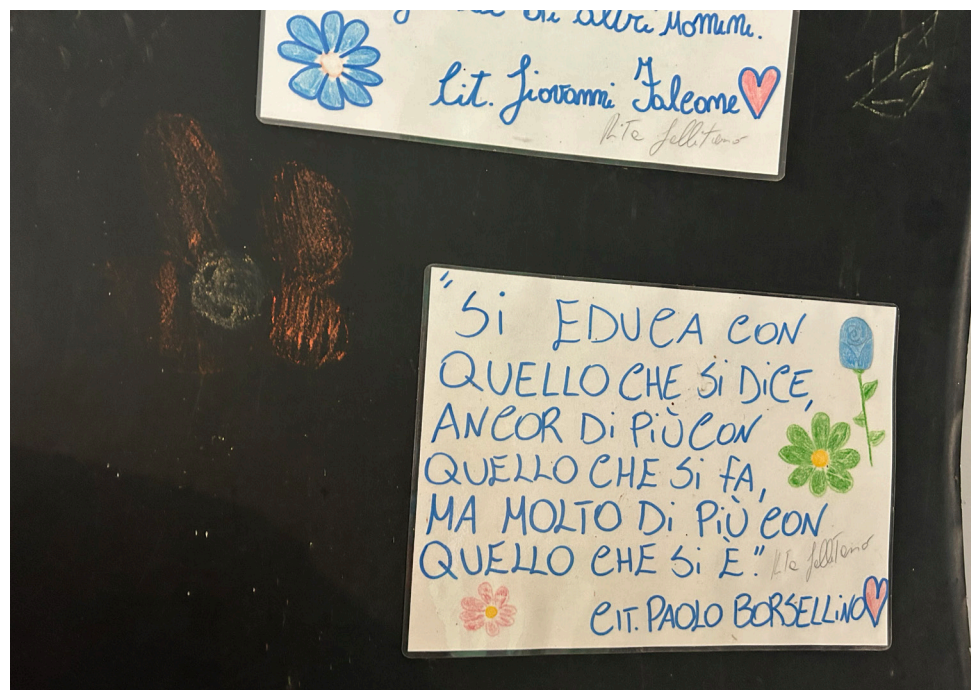 di altri uomini.
Cit. Giovanni Falcone
"Si EDUCA CON
QUELLO CHE Si DiCE,
ANCOR Di PiÙ CON
QUELLO CHE Si fA,
MA MOLTO Di PiÙ CON
QUELLO CHE Si È."
CiT. PAOLO BORSELLiNO